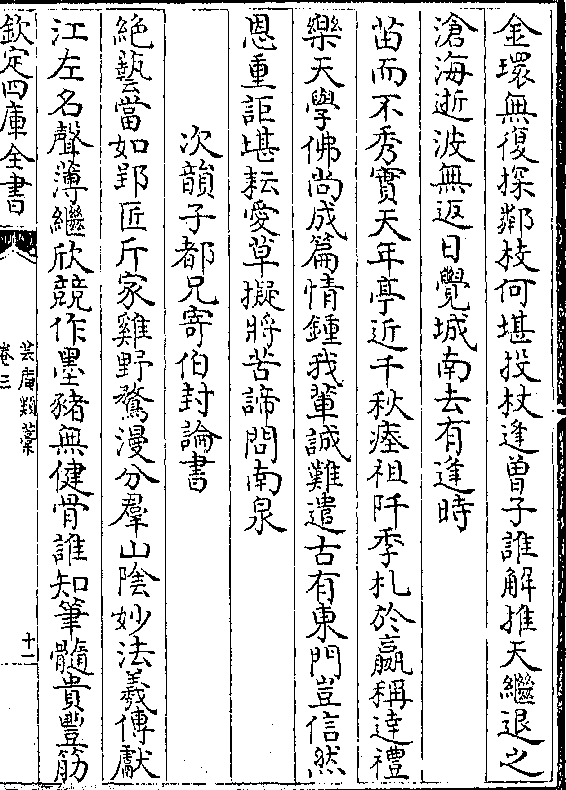 金環無復探鄰枝何堪投杖逢曽子誰解推天繼退之
滄海逝波無返日覺城南去有逢時
苗而不秀實天年亭近千秋瘞祖阡季札於嬴稱達禮
樂天學佛尚成篇情鍾我輩誠難遣古有東門豈信然
恩重詎堪耘愛草擬將苦諦問南泉
次韻子都兄寄伯封論書
絶藝當如郢匠斤家雞野鶩漫分羣山陰妙法羲傳獻
江左名聲薄繼欣競作墨豬無健骨誰知筆髓貴豐筋
欽定四庫全書
芸庵類藁
卷三
十一